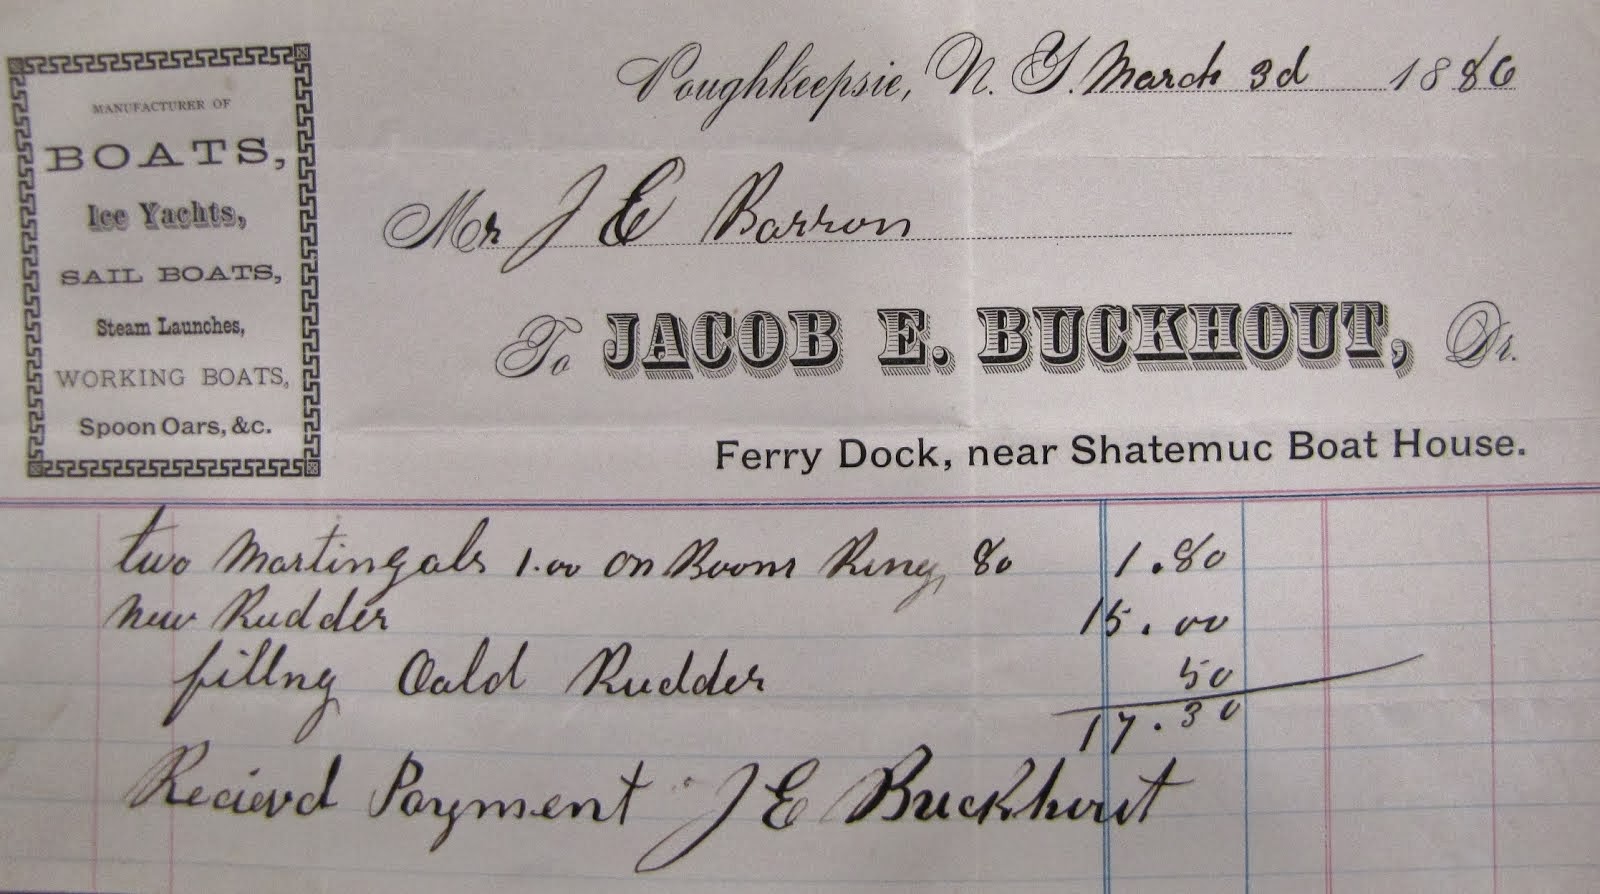 MANUFACTURER OF
BOATS,
Ice Yachts,
SAIL BOATS,
Steam Launches,
WORKING BOATS,
Spoon Oars, &c.
Poughkeepsie, N. Y. March 3d 1886
Mr J E Barron
To JACOB E. BUCKHOUT, Dr.
Ferry Dock, near Shatemuc Boat House.
two Martingals 1.00 on Boom Ring, 80 1.80
new Rudder 15.00
fillng Oald Rudder 50
17.30
Recievd Payment J E Buckhout